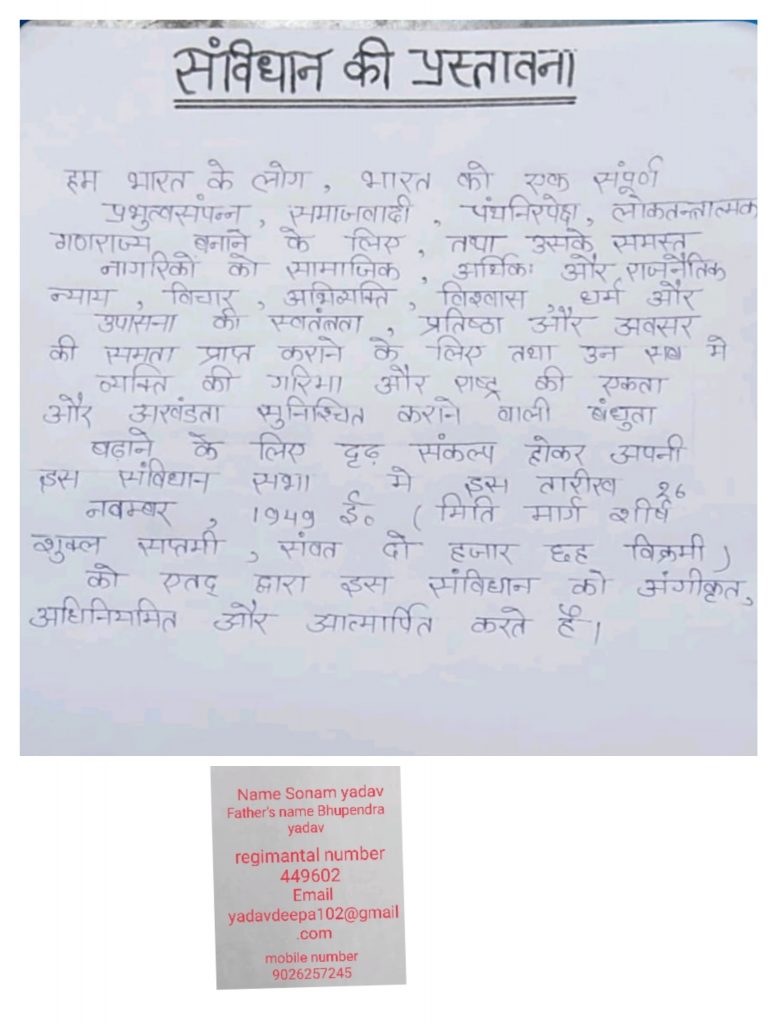 संविधान की प्रस्तावना
हम भारत के लोग , भारत को एक संपूर्ण
प्रभुत्वसंपन्न , समाजवादी , पंथनिरपेक्ष, लोकतन्त्तात्मक
गणराज्य बनाने के लिए , तथा उसके समस्त
नागरिकों को सामाजिक , आर्थिकः और राजनैतिक
न्याय , विचार , अभिव्यक्ति , विश्वास , धर्म और
उपासना की स्वतंत्तता , प्रतिष्ठा और अवसर
की समता प्राप्त कराने के लिए तथा उन सब मे
व्यक्ति की गरिमा और राष्ट्र की एकता
और अखंडता सुनिश्चित कराने वाली बंधुता
बढ़ाने के लिए दृढ़ संकल्प होकर अपनी
इस संविधान सभा मे इस तारीख 26
नवम्बर , 1949 ई० ( मिति मार्ग शीर्ष
शुक्ल सप्तमी , संवत दो हजार छह विक्रमी )
को एतद् द्वारा इस संविधान को अंगीकृत,
अधिनियमित और आत्मार्पित करते है।
Name Sonam yadav
Father's name Bhupendra
yadav
regimantal number
449602
Email
yadavdeepa102@gmail
.com
mobile number
9026257245